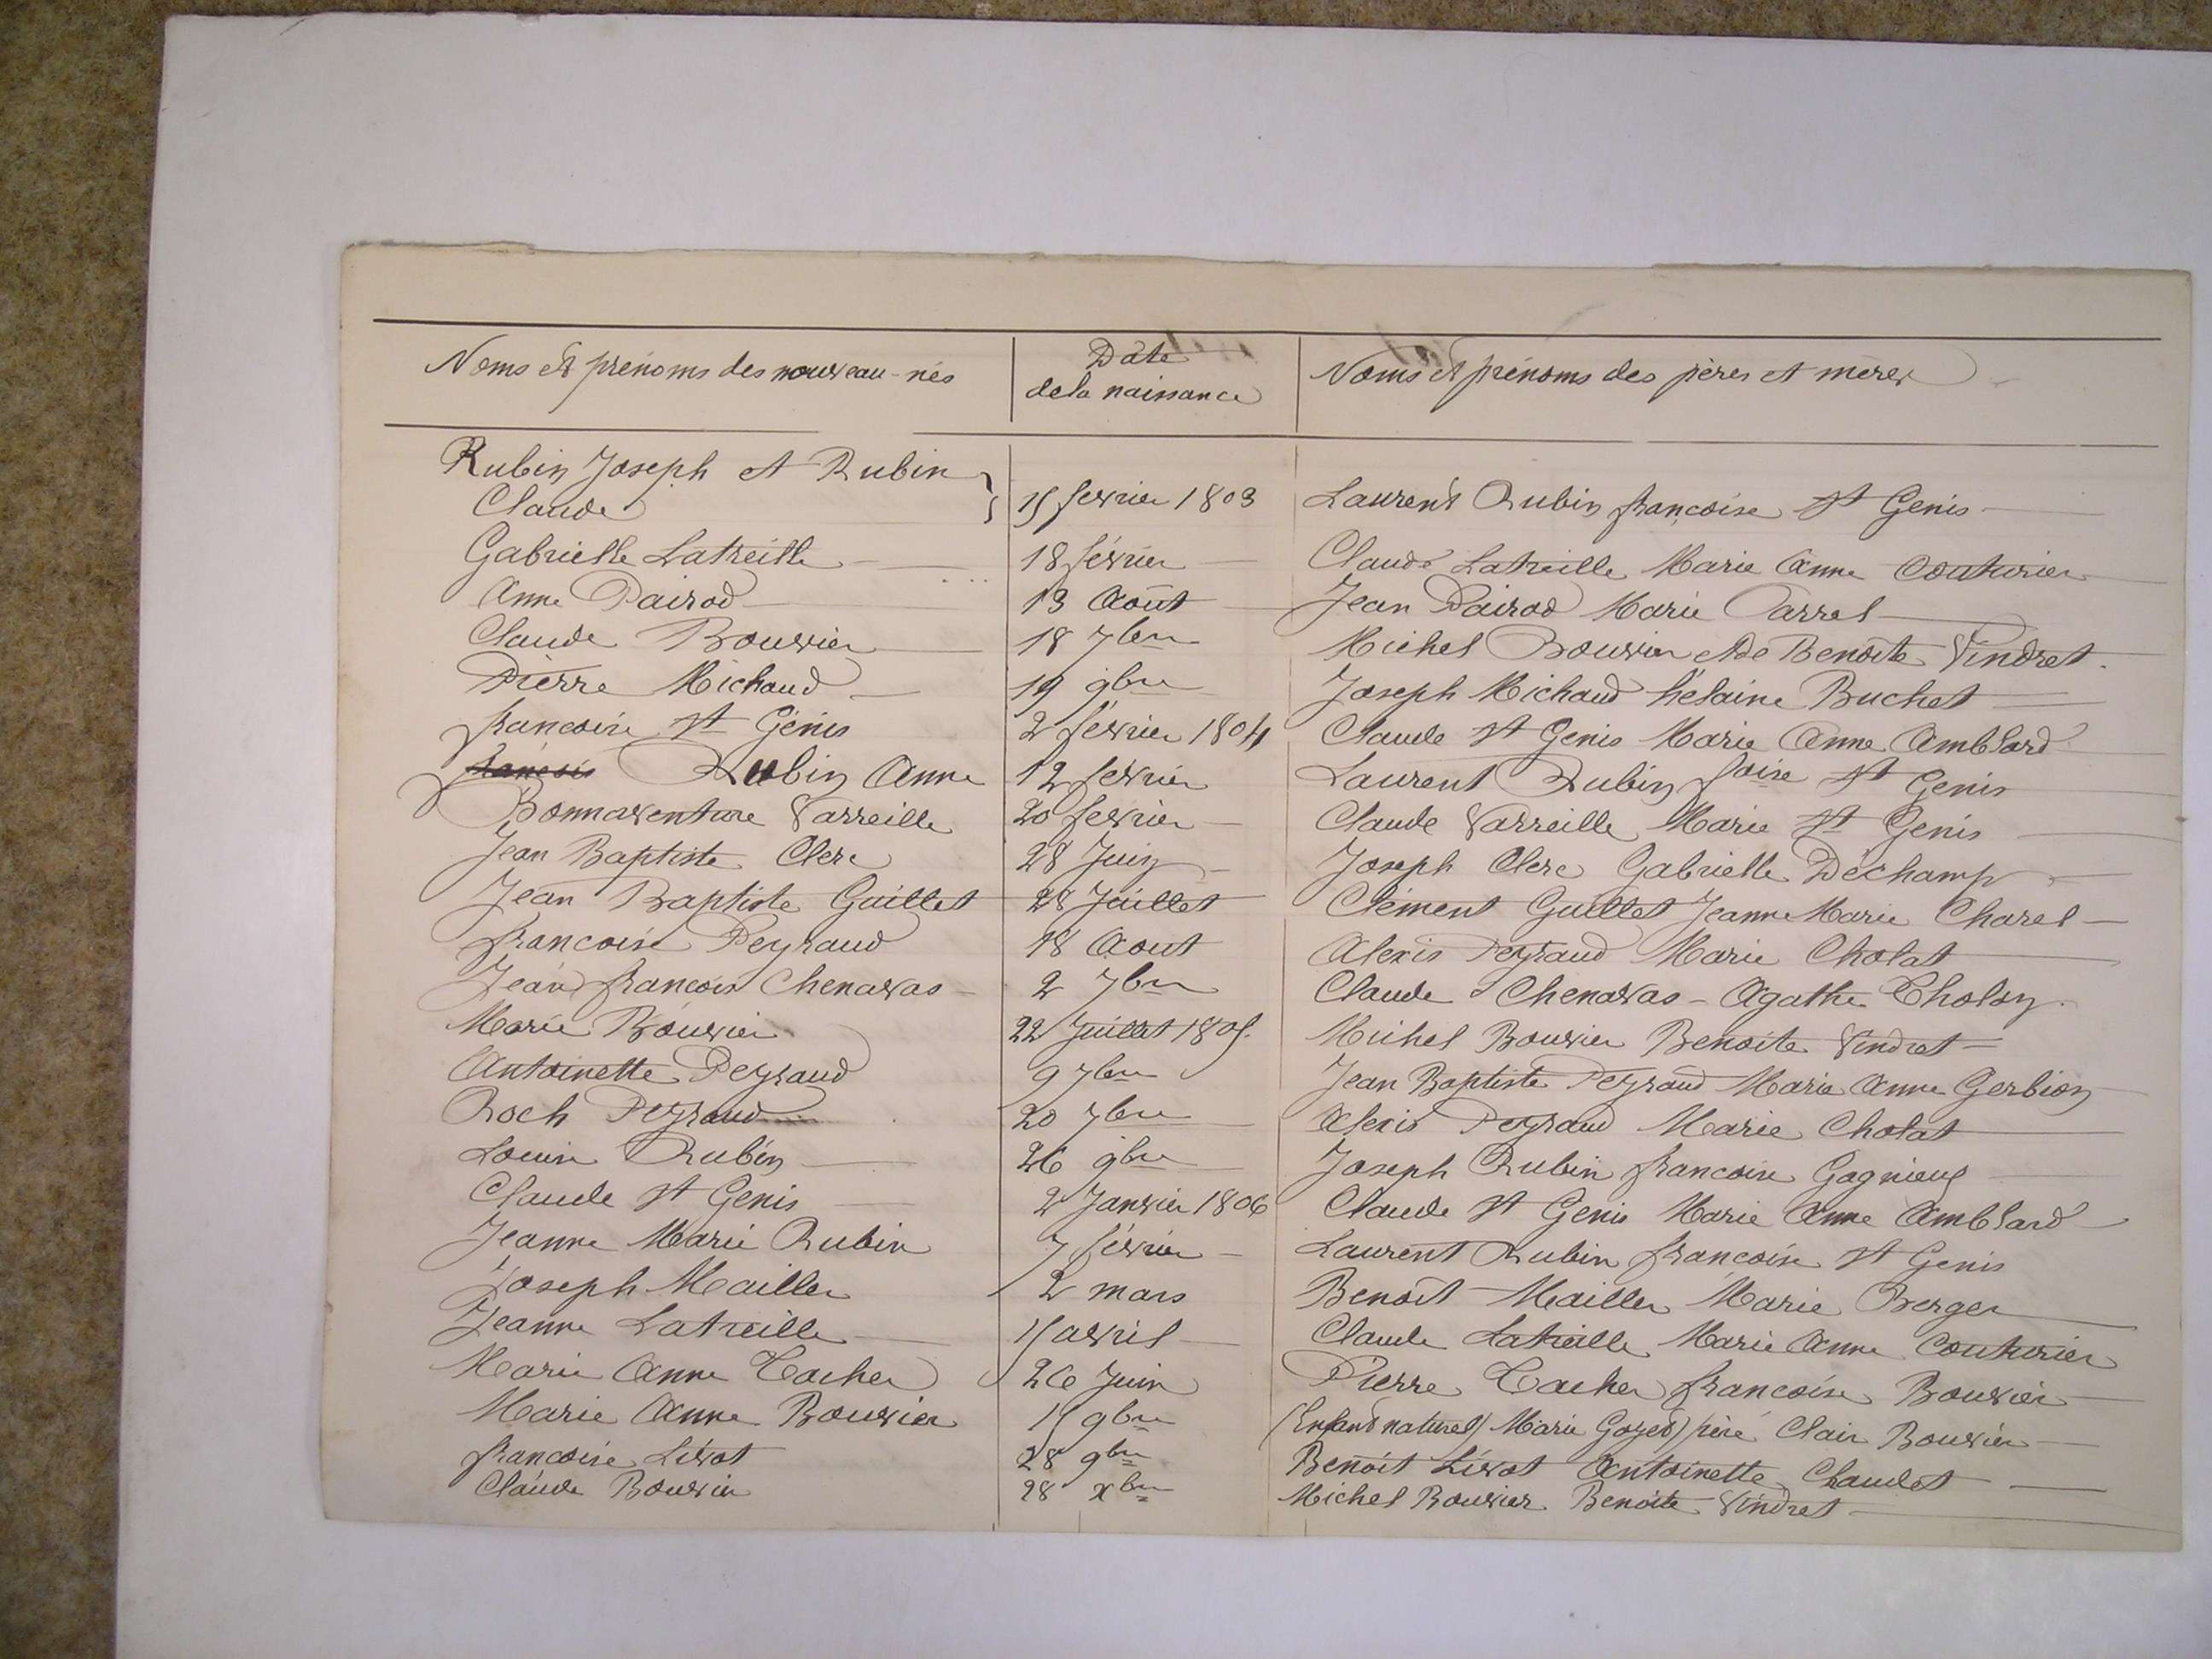 Noms et prénoms des nouveau-nés
Date
de la naissance
Noms et prénoms des pères et mères
Rubin Joseph et Rubin
Claude 15 fevrier 1803 Laurent Rubin françoise St Genis
Gabrielle Latreille 18 février Claude Latreille Marie Anne Couturier
Anne Pairod 13 Août Jean Pairod Marie Tarrel
Claude Bouvier 18 7bre Michel Bouvier et de Benoite Vindret
Pierre Michaud 19 9bre Joseph Michaud hélaine Buchet
francoise St Génis 2 février 1804 Claude St Genis Marie Anne Amblard
Rubin Anne 12 fevrier Laurent Rubin foise St Genis
Bonnaventure Varreille 20 fevrier Claude Varreille Marie St Genis
Jean Baptiste Clerc 28 Juin Joseph Clerc Gabrielle Déchamp
Jean Baptiste Guillet 28 Juillet Clément Guillet Jeanne Marie Charel
francoise Peyraud 18 Aout Alexis Peyraud Marie Cholat
Jean francois Chenavas 2 7bre Claude Chenavas - Agathe Tholon
Marie Bouvier 22 Juillet 1805. Michel Bouvier Benoite Vindret
Antoinette Peyraud 9 7bre Jean Baptiste Peyraud Marie Anne Gerbion
Roch Peyraud 20 7bre Alexis Peyraud Marie Cholat
Louise Rubin 26 9bre Joseph Rubin francoise Gagnieux
Claude St Genis 2 Janvier 1806 Claude St Genis Marie Anne Amblard
Jeanne Marie Rubin 7 février Laurent Rubin françoise St Genis
Joseph Mailler 2 mars Benoit Mailler Marie Berger
Jeanne Latreille 15 avril Claude Latreille Marie Anne Couturier
Marie Anne Tacher 26 Juin Pierre Tacher francoise Bouvier
Marie Anne Bouvier 15 9bre (Enfant naturel) Marie Goyet) père Clair Bouvier
francoise Livot 28 9bre Benoit Livot Antoinette Chaudet
Claude Bouvier 28 xbre Michel Bouvier Benoite Vindret